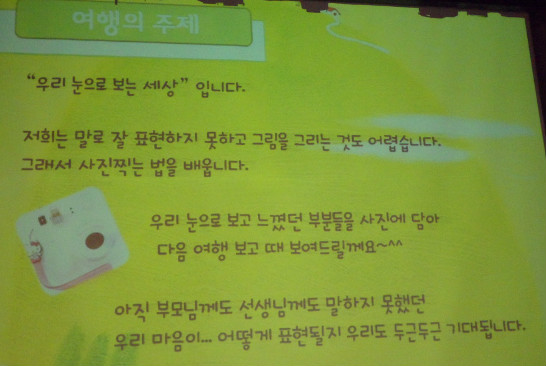 여행의 주제
“우리 눈으로 보는 세상” 입니다.
저희는 말로 잘 표현하지 못하고 그림을 그리는 것도 어렵습니다.
그래서 사진찍는 법을 배웁니다.
우리 눈으로 보고 느꼈던 부분들을 사진에 담아
다음 여행 보고 때 보여드릴께요~^^
아직 부모님께도 선생님께도 말하지 못했던
우리 마음이... 어떻게 표현될지 우리도 두근두근 기대됩니다.